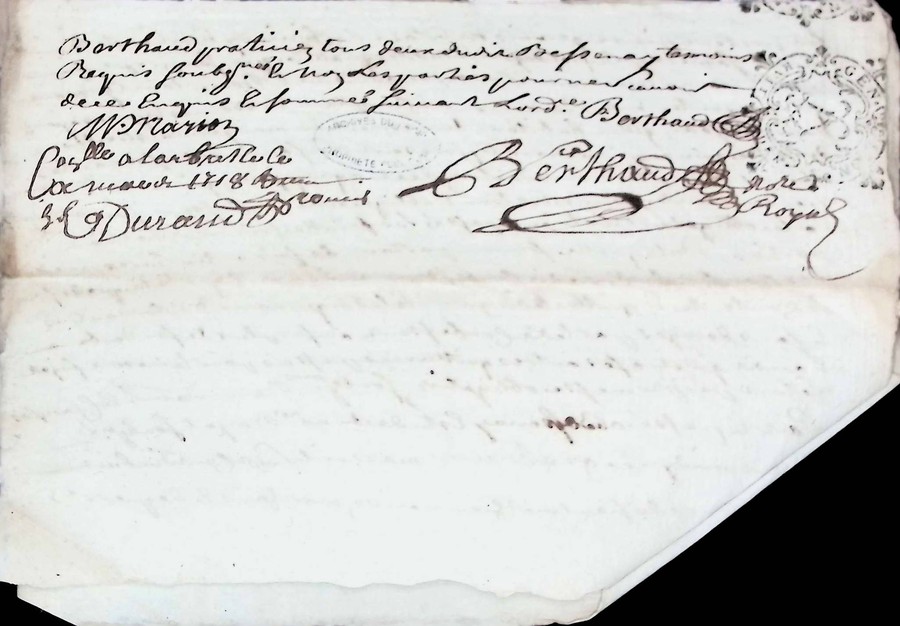 Berthaud praticiez tous deux dudit Bessenay temoins
Requis soubsignés et non les parties pour ne scavoir
de ce enquis et sommé suivant l'ord.e Berthaud
M Marion
Con.lle a larbresle le
mars 1718
Durand
Berthaud
not.e
Royal